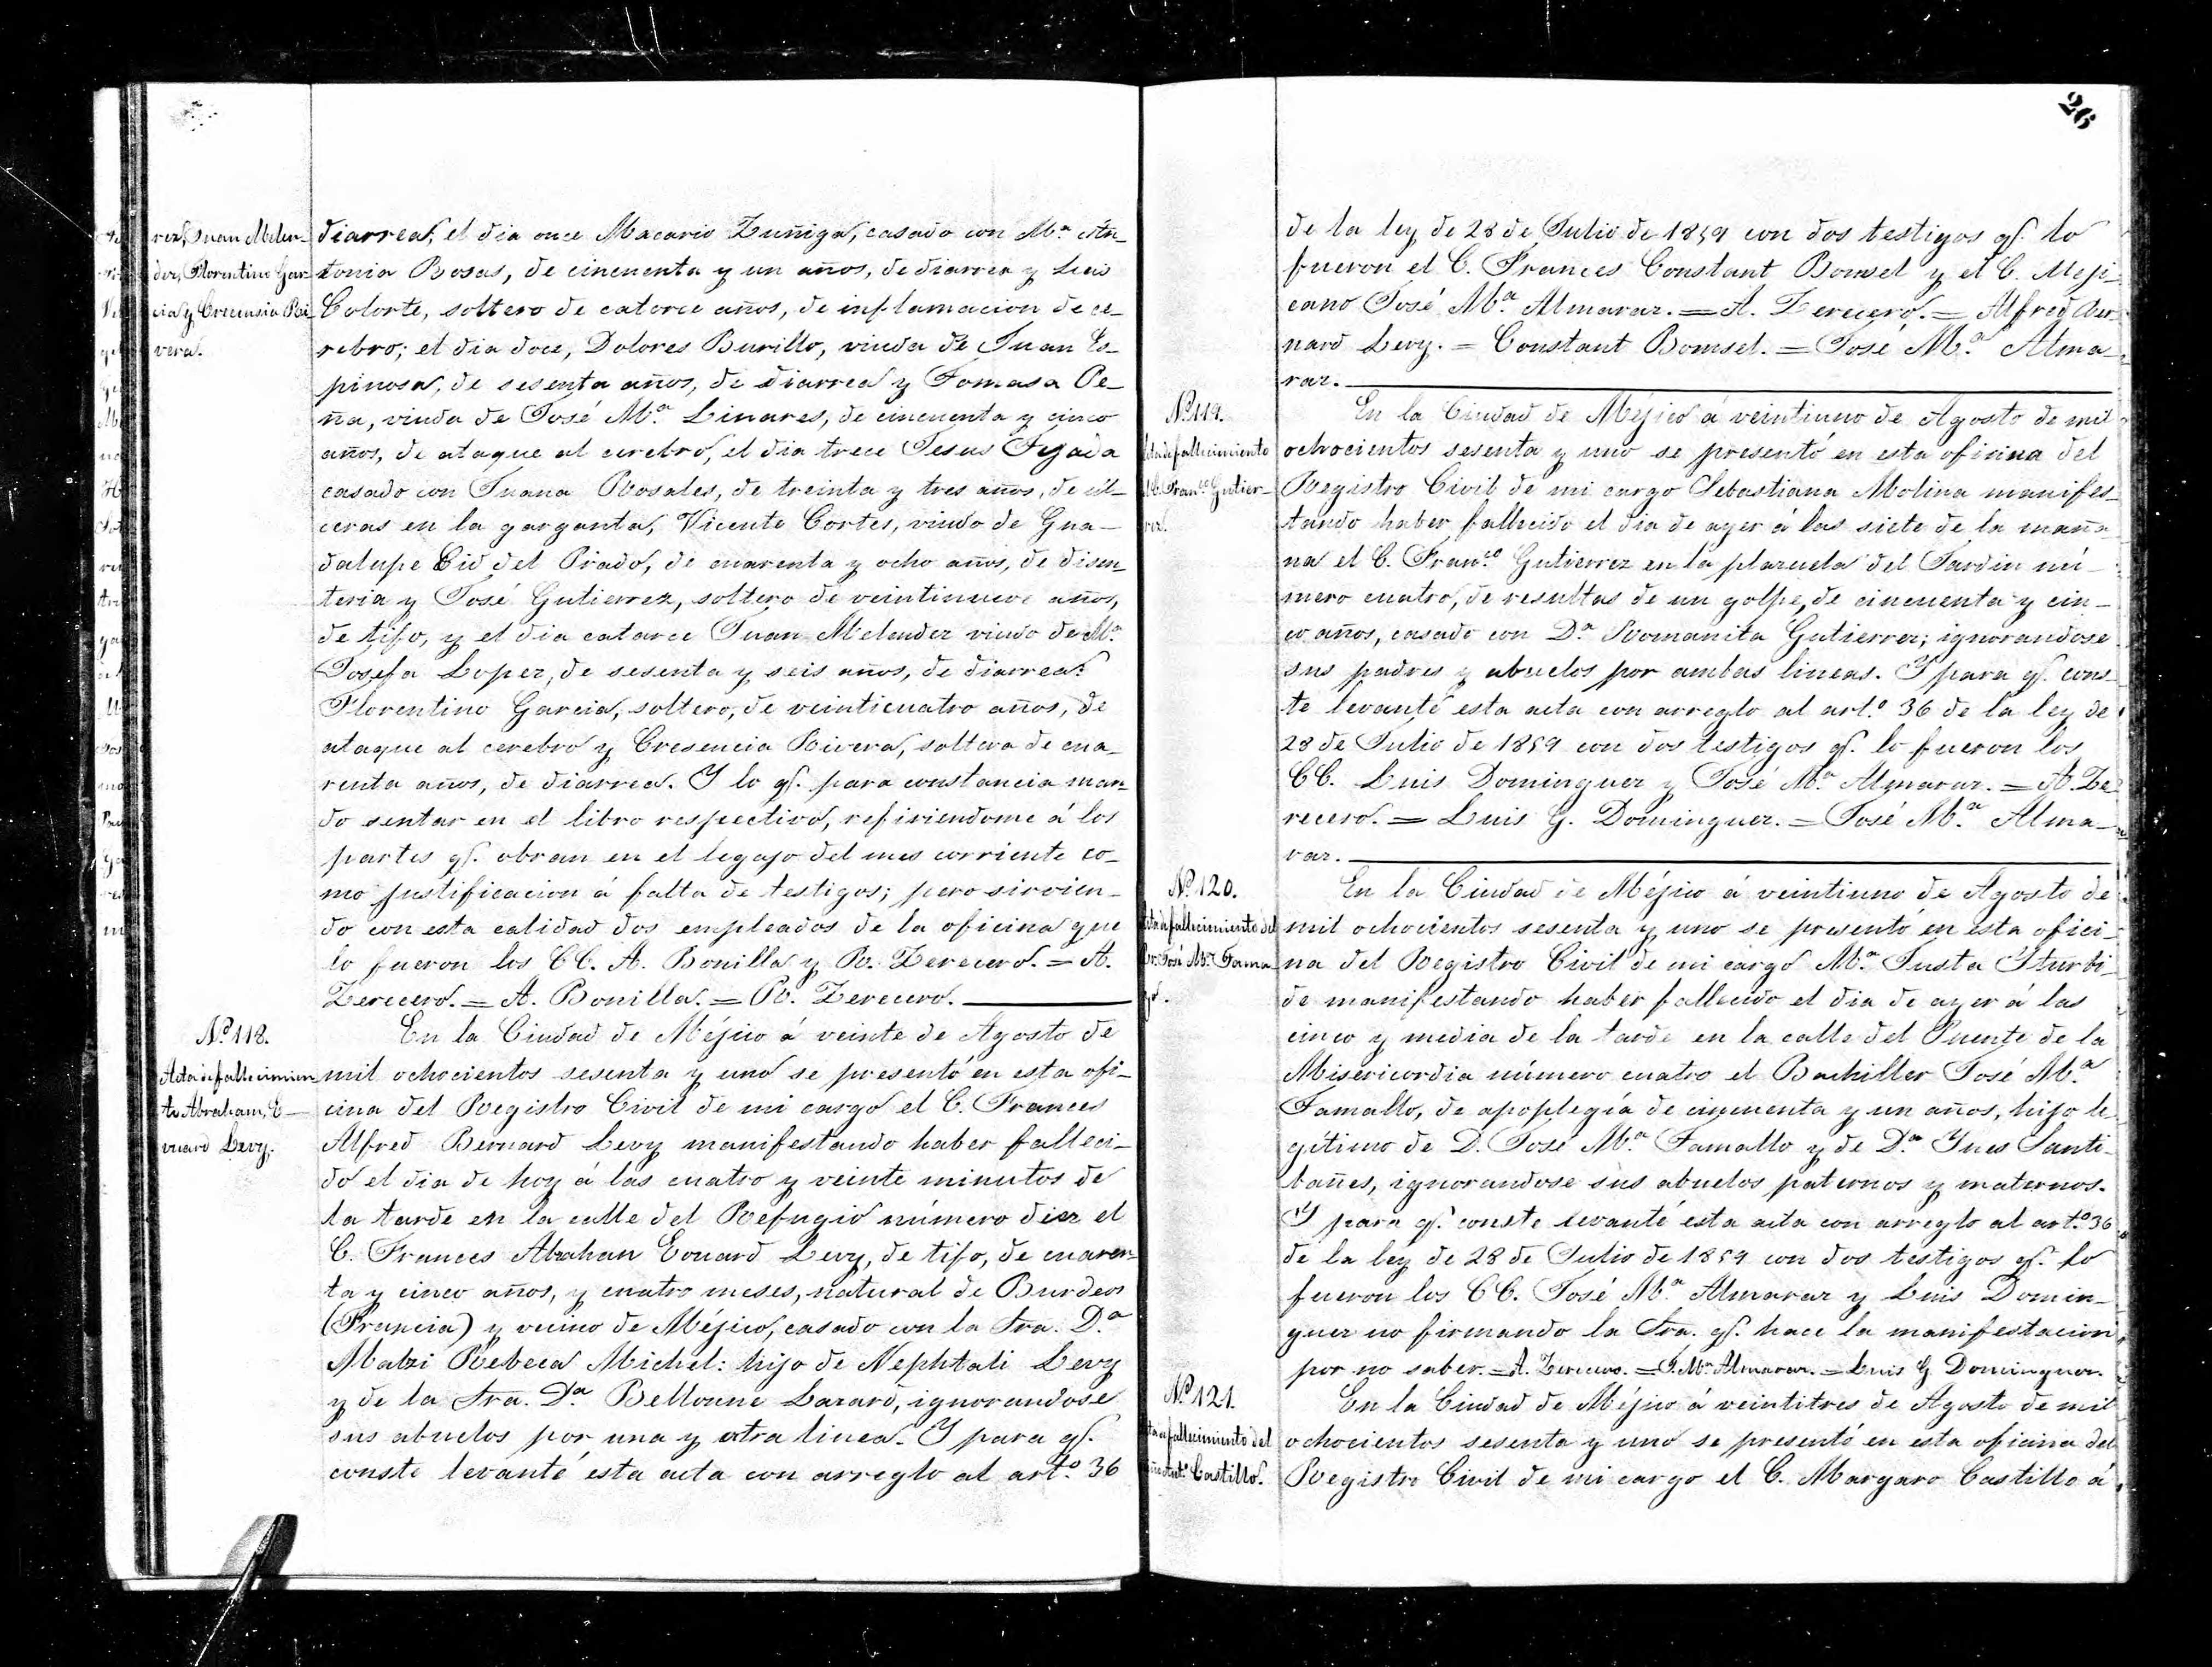 rez, Juan Melen-
dez, Florentino Gar-
cia y Cresencia Ri-
vera.
diarrea, el dia once Macario Zuñiga, casado con Mª An-
tonia Rosas, de cincuenta y un años, de diarrea y Luis
Colorte, soltero de catorce años, de inflamacion de ce-
rebro; el dia doce, Dolores Burillo, viuda de Juan Es-
pinosa, de sesenta años, de diarrea y Tomasa Pe-
ña, viuda de José Mª Linares, de cincuenta y cinco
años, de ataque al cerebro, el dia trece Jesus Tejada
casado con Juana Rosales, de treinta y tres años, de úl-
ceras en la garganta, Vicente Cortes, viudo de Gua-
dalupe Cid del Prado, de cuarenta y ocho años, de disen-
teria y José Gutierrez, soltero de veintinueve años,
de tifo, y el dia catorce Juan Melendez viudo de Mª
Josefa Lopez, de sesenta y seis años, de diarrea:
Florentino Garcia, soltero, de veinticuatro años, de
ataque al cerebro y Cresencia Rivera, soltera de cua-
renta años, de diarrea. Y lo q. para constancia man-
do sentar en el libro respectivo, refiriendome á los
partes q. obran en el legajo del mes corriente co-
mo justificacion á falta de testigos; pero sirvien-
do con esta calidad dos empleados de la oficina que
lo fueron los CC. A. Bonilla y R. Zerecero. = A.
Zerecero. = A. Bonilla. = R. Zerecero.
Nº 118.
Acta de fallecimien
to Abraham, E-
duard Levy.
En la Ciudad de Méjico á veinte de Agosto de
mil ochocientos sesenta y uno se presentó en esta ofi-
cina del Registro Civil de mi cargo el C. Frances
Alfred Bernard Levy manifestando haber falleci-
do el dia de hoy á las cuatro y veinte minutos de
la tarde en la calle del Refugio número diez el
C. Frances Abrahan Eouard Levy, de tifo, de cuaren-
ta y cinco años, y cuatro meses, natural de Burdeos
(Francia) y vecino de Méjico, casado con la Sra. Dª
Malzi Rebeca Michel: hijo de Nephtali Levy
y de la Sra. Dª Bellonne Lazard, ignorandose
sus abuelos por una y otra linea. Y para q.
conste levanté esta acta con arreglo al artº 36
26
de la ley de 28 de Julio de 1859 con dos testigos q. lo
fueron el C. Frances Constant Bomsel y el C. Meji-
cano José Mª Almaraz. = A. Zerecero. = Alfred Ber-
nard Levy. = Constant Bomsel. = José Mª Alma-
raz.
Nº 119.
Acta de fallecimiento
d C. Franco Gutier-
rez.
En la Ciudad de Méjico á veintiuno de Agosto de mil
ochocientos sesenta y uno se presentó en esta oficina del
Registro Civil de mi cargo Sebastiana Molina manifes-
tando haber fallecido el dia de ayer á las siete de la maña-
na el C. Franco Gutierrez en la plazuela del Jardin nú-
mero cuatro, de resultas de un golpe, de cincuenta y cin-
co años, casado con Dª Romanita Gutierrez; ignorandose
sus padres y abuelos por ambas lineas. Y para q. cons-
te levanté esta acta con arreglo al artº 36 de la ley de
28 de Julio de 1859 con dos testigos q. lo fueron los
CC. Luis Dominguez y José Mª Almaraz. = A. Ze-
recero. = Luis G. Dominguez. = José Mª Alma-
raz.
Nº 120.
Acta de fallecimiento del
Br. José Mª Tama
yo.
En la Ciudad de Méjico á veintiuno de Agosto de
mil ochocientos sesenta y uno se presentó en esta ofici-
na del Registro Civil de mi cargo Mª Justa Yturbi-
de manifestando haber fallecido el dia de ayer á las
cinco y media de la tarde en la calle del Puente de la
Misericordia número cuatro el Bachiller José Mª
Tamallo, de apoplegía de cincuenta y un años, hijo le-
gítimo de D. José Mª Tamallo y de Dª Ynes Santi-
bañes, ignorandose sus abuelos paternos y maternos.
Y para q. conste levanté esta acta con arreglo al artº 36
de la ley de 28 de Julio de 1859 con dos testigos q. lo
fueron los CC. José Mª Almaraz y Luis Domin-
guez no firmando la Sra. q. hace la manifestacion
por no saber. = A. Zerecero. = J. Mª Almaraz. = Luis G Dominguez.
Nº 121.
Acta de fallecimiento del
Castillo.
En la Ciudad de Méjico á veintitres de Agosto de mil
ochocientos sesenta y uno se presentó en esta oficina del
Registro Civil de mi cargo el C. Margaro Castillo á